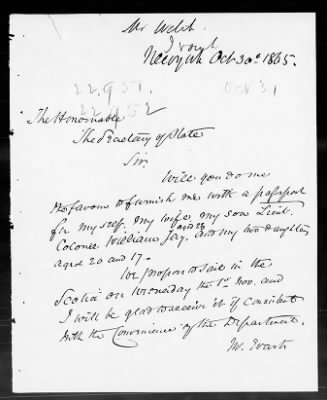 Mr Welsh
New York Oct 30th 1865.
22.951. Oct 31
22.952
The Honorable
The Secretary of State
Sir,
Will you do me
the favour to furnish me with a passport
for myself, my wife, my son Lieut.
aged 25
Colonel William Jay, and my two daughters
aged 20 and 17.
We propose to sail in the
Scotia on Wednesday the 1st Nov. and
I will be glad to receive it if consistent
with the Convenience of the Department.